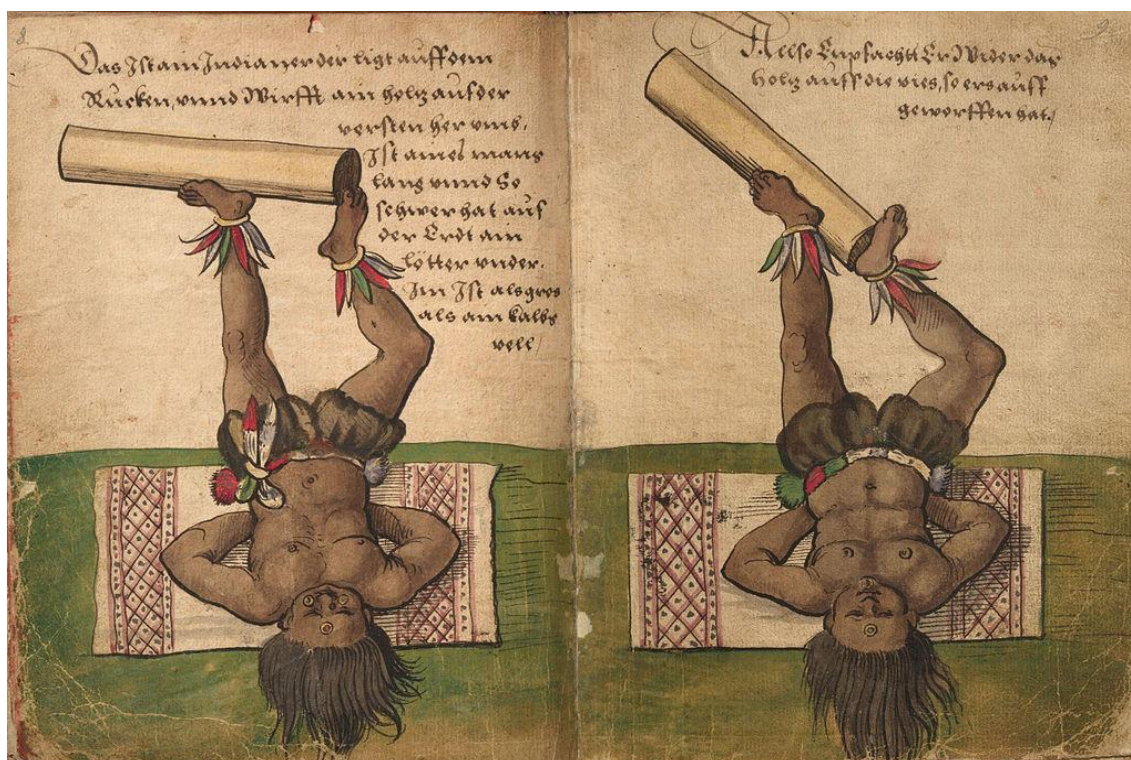 8.
Das Ist ain Indianer der ligt auff dem
Rucken, unnd Wirfft ain holtz auf der
versten her umb,
Ist aines mans
lang unnd So
schwer hat auf
der Erdt ain
lötter under.
Im Ist als gros
als ain kalbs
vell /
9.
Allso Empfacht Er Wider das
holtz auff die vies, so ers auff
geworffen hat. /